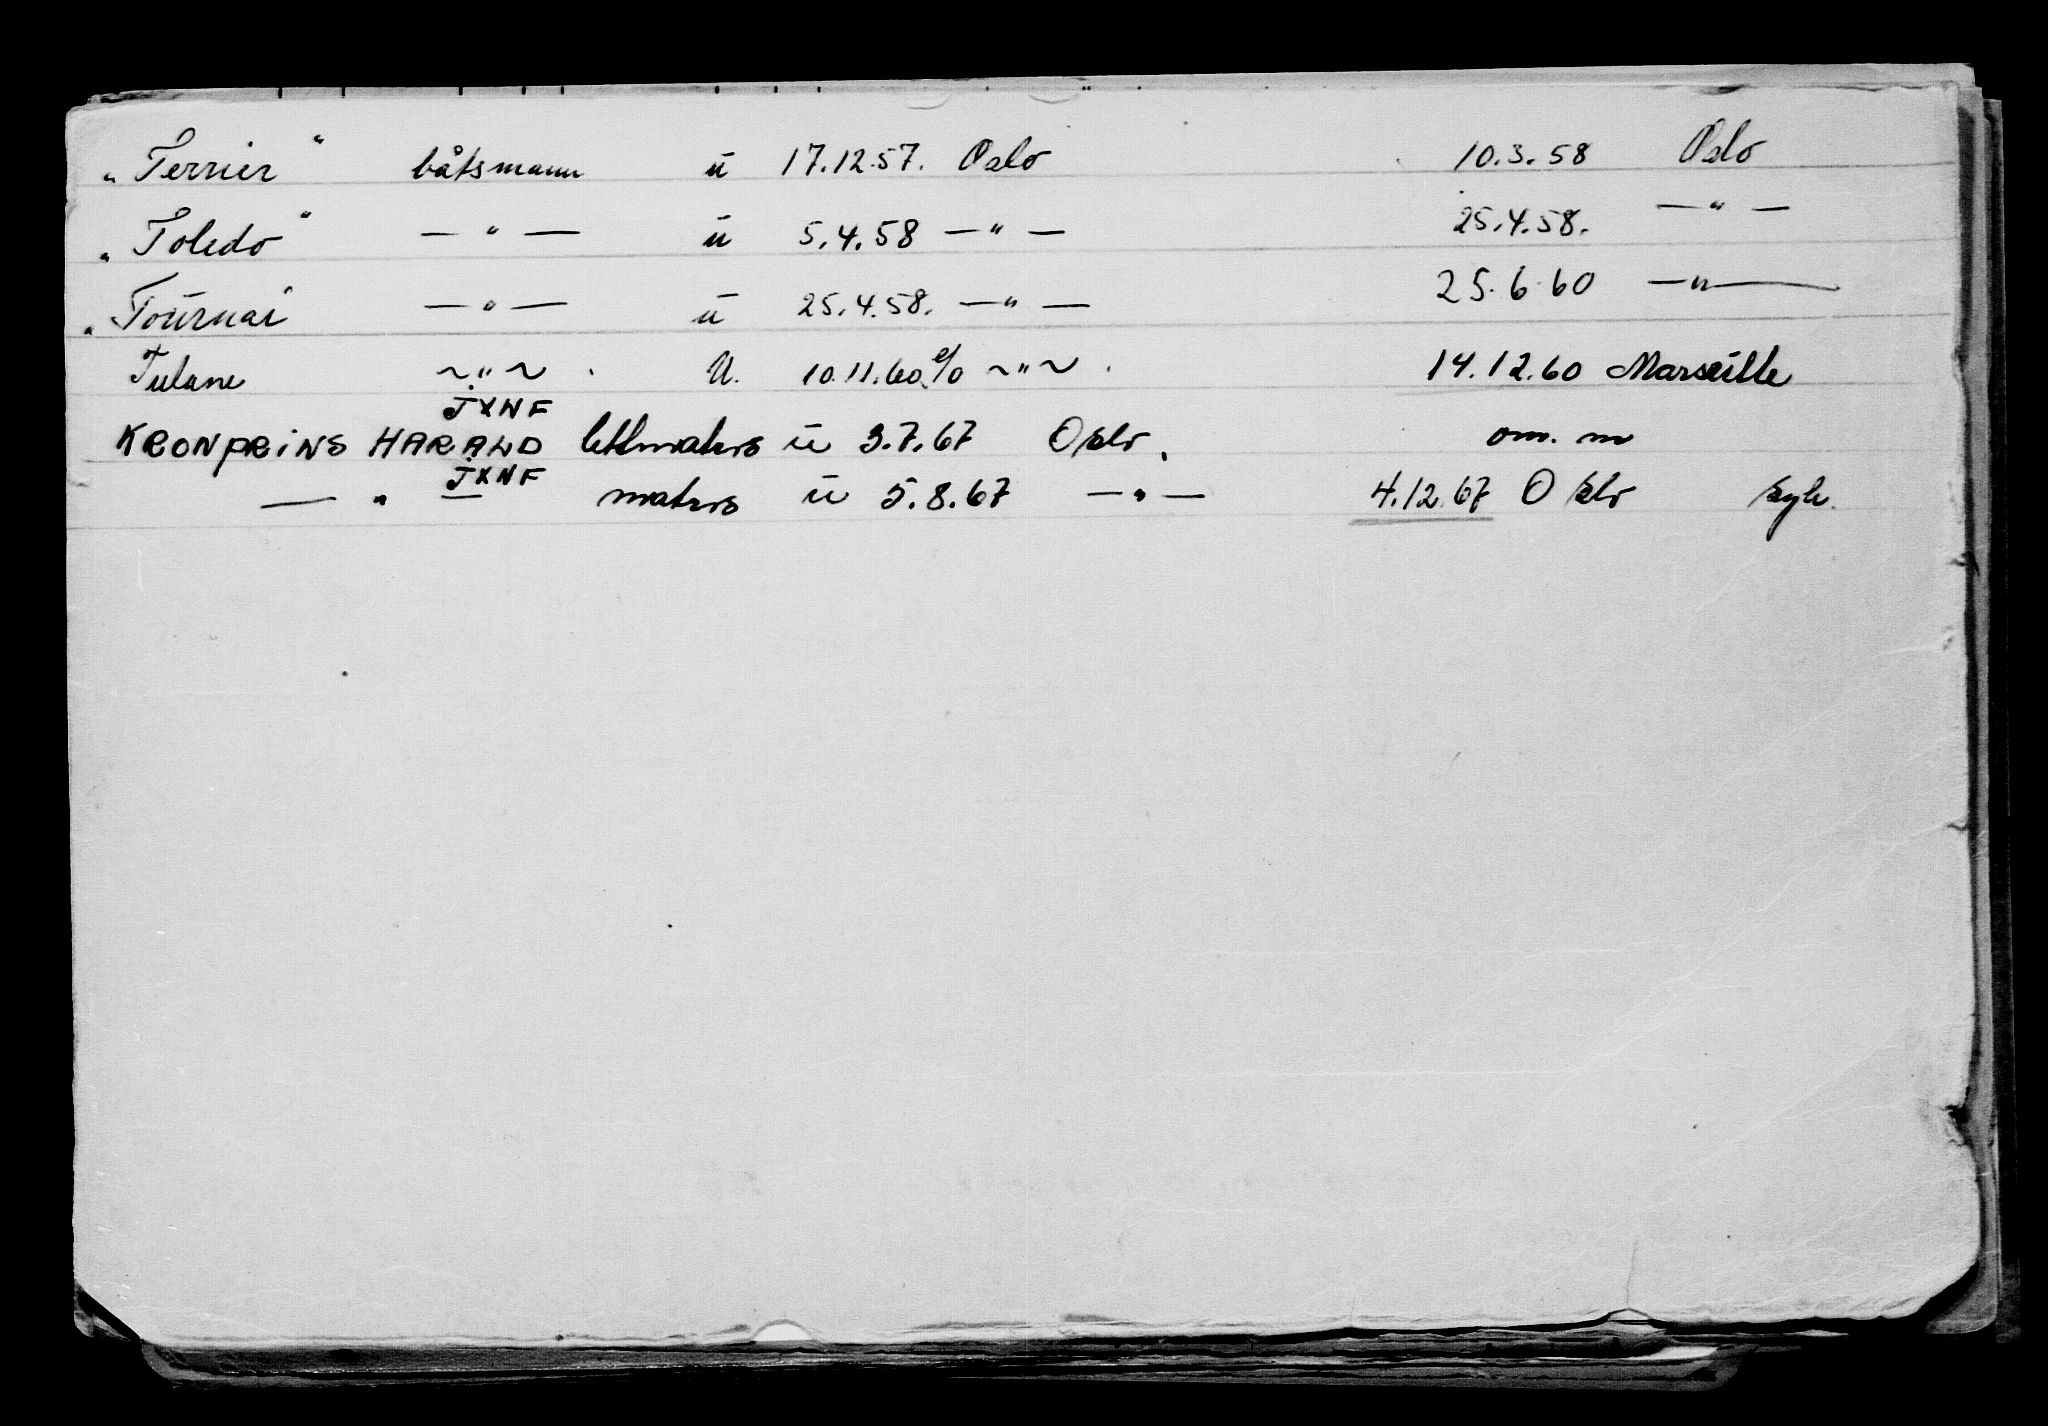 "Terrier" båtsmann u 17.12.57. Oslo 10.3.58 Oslo
"Toledo" — " — u 5.4.58 — " — 25.4.58. — " —
"Tournai — " — u 25.4.58. — " — 25.6.60 — " —
Tulane ~ " ~ . U. 10.11.60 e/o ~ " ~ . 14.12.60 Marseille
JXNF
KRONPRINS HARALD lettmatros u 3.7.67 Oslo. om. m
JXNF
— " — matros u 5.8.67 — " — 4.12.67 Oslo syk.